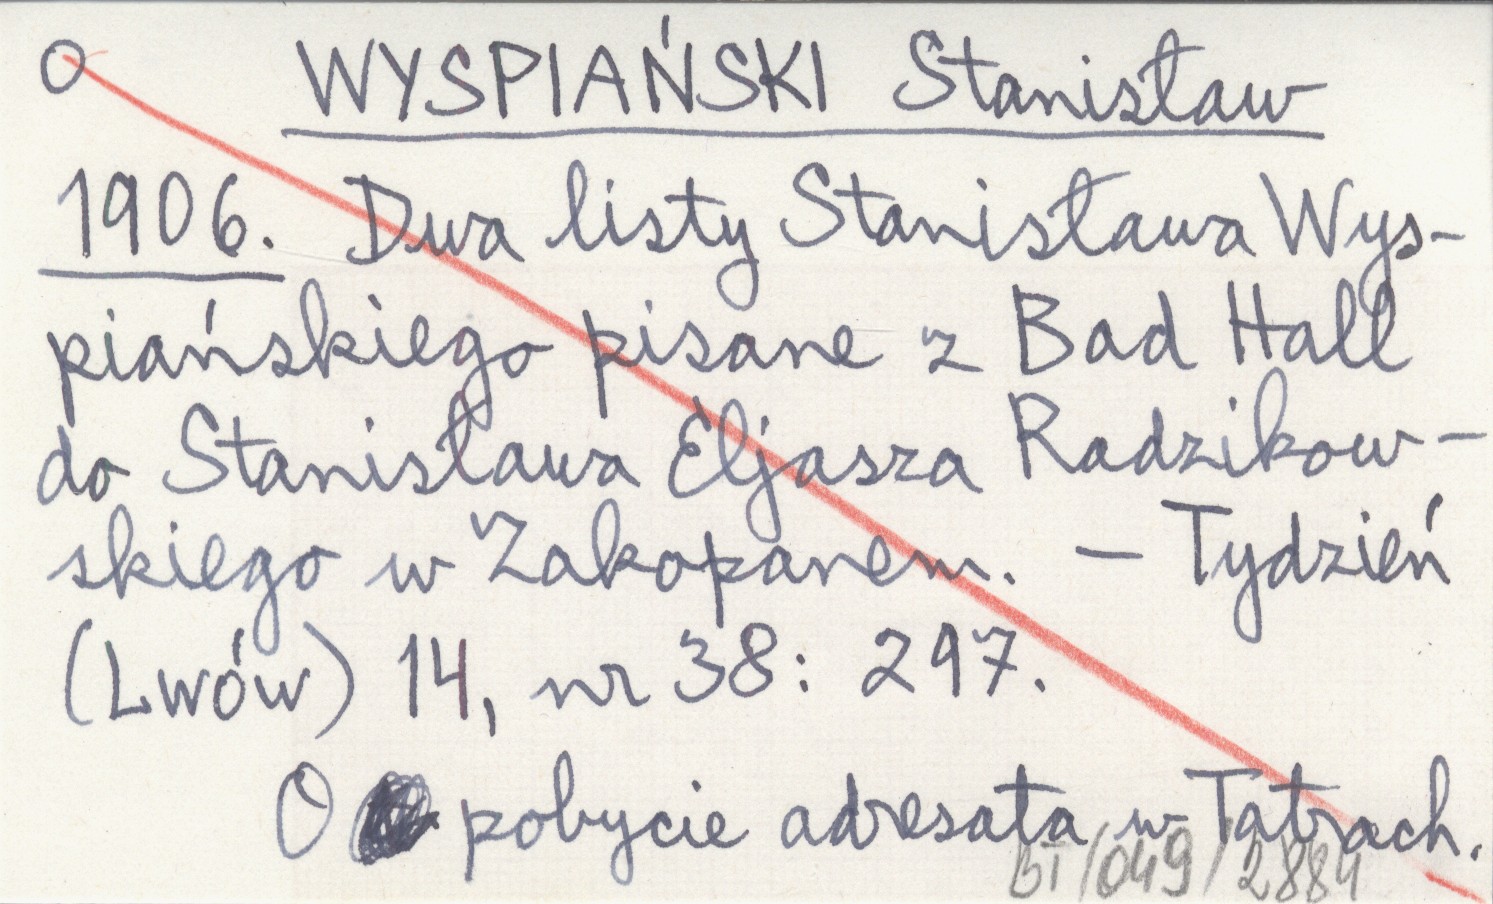 O WYSPIAŃSKI Stanisław
1906. Dwa listy Stanisława Wys-
piańskiego pisane z Bad Hall
do Stanisława Eljasza Radzikow-
skiego w Zakopanem. — Tydzień
(Lwów) 14, nr 38: 297.
O pobycie adresata w Tatrach.
BT/049/2884